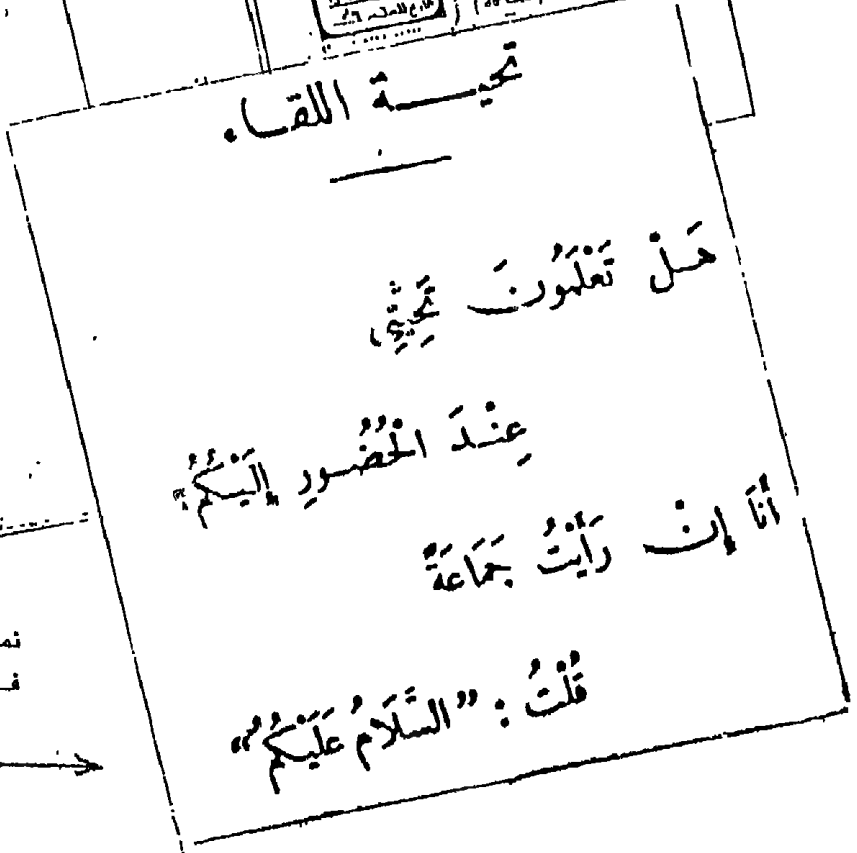 تحية اللقاء
هَلْ تَعْلَمُونَ تَحِيَّتِي
عِنْدَ الْحُضُورِ إِلَيْكُمُ؟
أَنَا إِنْ رَأَيْتُ جَمَاعَةً
قُلْتُ : "السَّلَامُ عَلَيْكُمُ"